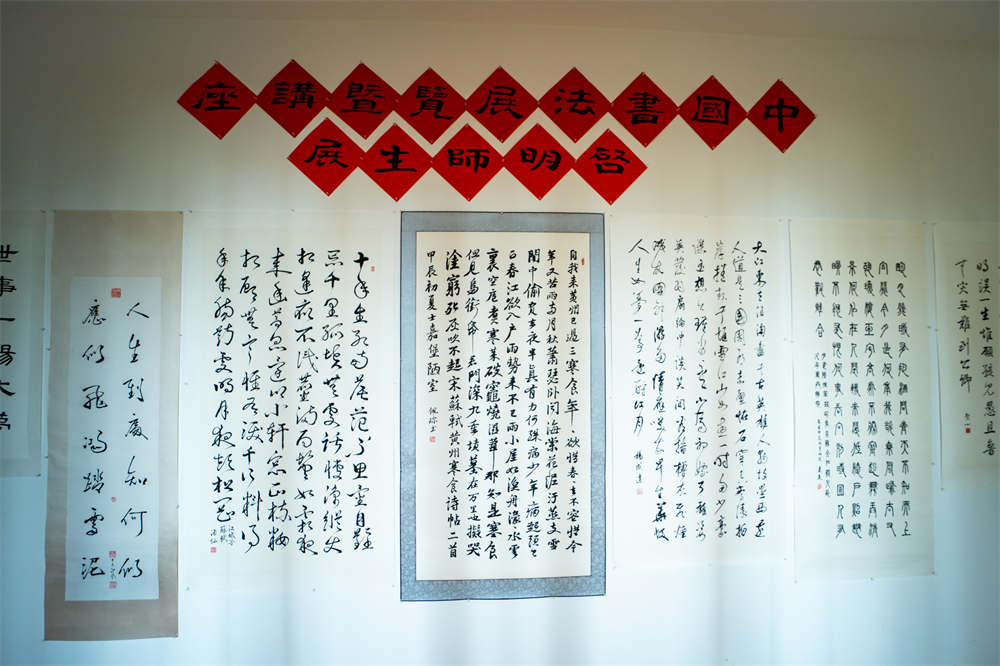 中國書法展覽暨講座
啓明師生展
明誤一生惟願孩兒愚且魯
無災無難到公卿
明月幾時有把酒問青天不知天上
宮闕今夕是何年我欲乘風歸去又
恐瓊樓玉宇高處不勝寒起舞弄清
影何似在人間轉朱閣低綺戶照無
眠不應有恨何事長向別時圓人有
悲歡離合
大江東去浪淘盡千古英雄人物故壘西邊
人道是三國周郎赤壁石穿空驚濤拍
岸捲起千堆雪江山如畫一時多少豪
傑遙想公瑾當年小喬初嫁了雄姿
英發羽扇綸巾談笑間檣櫓灰飛煙
滅故國神游多情應笑我早生華髮
人生如夢一尊還酹江月
自我來黃州已過三寒食年年欲惜春春去不容惜今
年又苦雨兩月秋蕭瑟卧聞海棠花泥汙燕支雪
闇中偷負去夜半真有力何殊病少年病起頭已
白春江欲入戶雨勢來不已雨小屋如漁舟濛濛水雲
裏空庖煮寒菜破竈燒溼葦那知是寒食
但見烏銜帋君門深九重墳墓在万里也擬哭
塗窮死灰吹不起宋蘇軾黃州寒食詩帖二首
甲辰初夏于嘉堡陋室
十年生死兩茫茫不思量自難
忘千里孤墳無處話淒涼縱使
相逢應不識塵滿面鬢如霜夜
來幽夢忽還鄉小軒窗正梳妝
相顧無言惟有淚千行料得
年年腸斷處明月夜短松岡
江城子
蘇軾
人生到處知何似
應似飛鴻踏雪泥
世事一場大夢